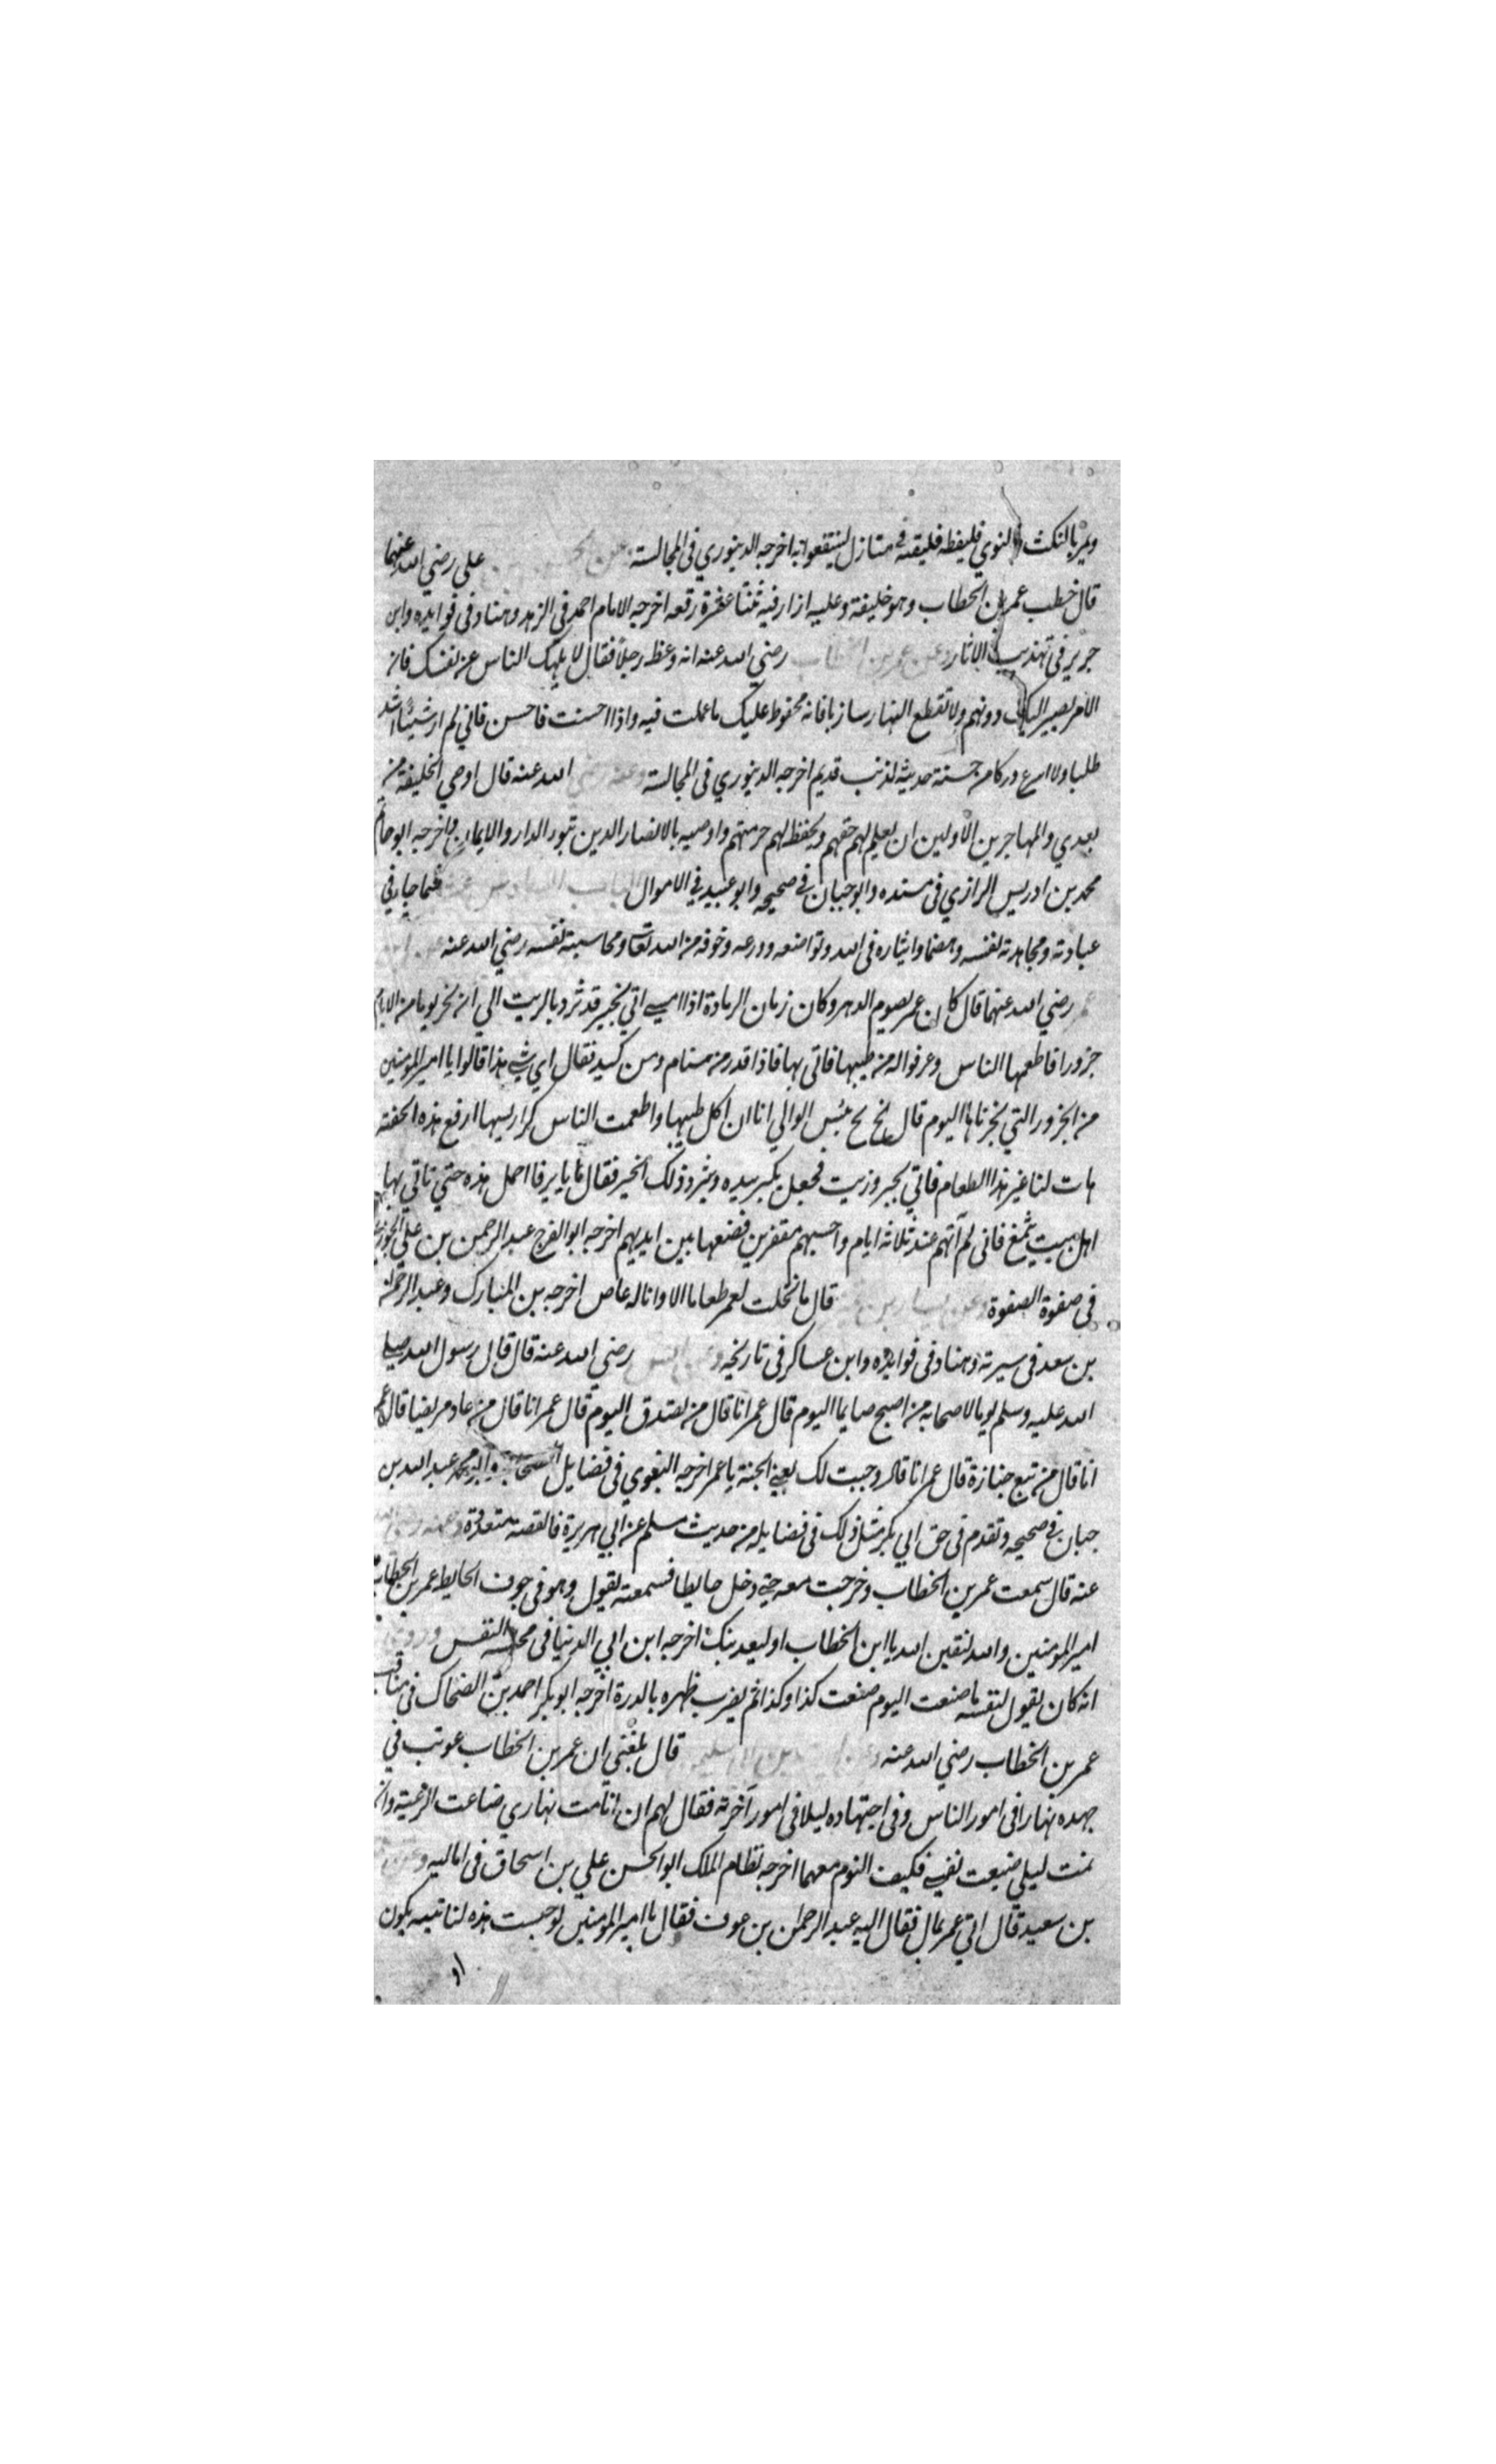 ويمر بالنكث والنوي فليفظه فليقه في منازل لينتفعوا به اخرجه الدينوري في المجالسة علي رضي الله عنهما
قال خطب عمر بن الخطاب وهو خليفة وعليه ازار فيه ثنتا عشرة رقعه اخرجه الامام احمد في الزهد وهناد في فوايده وابن
جرير في تهذيب الاثار وعن عمر بن الخطاب رضي الله عنه انه وعظ رجلا فقال لا يلهك الناس عن نفسك فان
الامر يصير اليك دونهم ولا تقطع النهار سازبا فانه محفوظ عليك ما عملت فيه واذا احسنت فاحسن فاني لم ار شيئا اشد
طلبا ولا اسرع دركا من حسنة حديثه لذنب قديم اخرجه الدينوري في المجالسة وعنه رضي الله عنه قال اوصي الخليفة من
بعدي والمهاجرين الاولين ان يعلم لهم حقهم ويحفظ لهم حرمتهم واوصيه بالانصار الدين تبوو الدار والايمان اخرجه ابو حاتم
محمد بن ادريس الرازي في مسنده وابو حبان في صحيحه وابو عبيد في الاموال الباب السادس عشر فيما جاء في
عبادته ومجاهدته لنفسه وايثاره في الله وتواضعه وورعه وخوفه من الله تعالى ومحاسبته نفسه رضي الله عنه
عمر رضي الله عنهما قال كان عمر يصوم الدهر وكان زمان الرمادة اذا امسي اتي بخبز قد ثرد بالزيت الي ان نحر يوما من الايام
جزورا فاطعمها الناس وعرفوا له من طيبها فاتي بها فاذا قدر من سنام ومن كبد فقال اي شي هذا قالوا يا امير المومنين
من الجزور التي نحرناها اليوم قال بخ بخ بئس الوالي انا ان اكل طيبها واطعمت الناس كراديسها ارفع هذه الجفنة
هات لنا غير هذا الطعام فاتي بخبز وزيت فجعل يكسر بيده ويثرد ذلك الخبز فقال يا يرفا احمل هذه حتي تاتي بها
اهل بيت بثمغ فاني لم آتهم عند ثلاثه ايام واحسبهم مقفرين فضعها بين ايديهم اخرجه ابو الفرج عبد الرحمن بن علي الجوزي
في صفوة الصفوة وعن يسار بن قال ما نخلت لعمر طعاما الا وانا له عاص اخرجه بن المبارك وعبد الرحمن
بن سعد في سيرته وهناد في فوايده وابن عساكر في تاريخه وعن انس رضي الله عنه قال قال رسول الله صلي
الله عليه وسلم يوما لاصحابه من اصبح صايما اليوم قال عمر انا قال من تصدق اليوم قال عمر انا قال من عاد مريضا قال عمر
انا قال من تبع جنازة قال عمر انا قال وجبت لك يعني الجنة يا عمر اخرجه البغوي في فضايل الصحابة وابو محمد عبد الله بن
حبان في صحيحه وتقدم في حق ابي بكر مثل ذلك في فضايله من حديث مسلم عن ابي هريرة فالقصة متعددة وعنه رضي الله
عنه قال سمعت عمر بن الخطاب وخرجت معه حتي دخل حايطا فسمعته يقول وهو في جوف الحايط عمر بن الخطاب
امير المومنين والله لتقين الله يا ابن الخطاب او ليعذبنك اخرجه ابن ابي الدنيا في محاسبة النفس وروي
انه كان يقول لنفسه ما صنعت اليوم صنعت كذا وكذا ثم يضرب ظهره بالدرة اخرجه ابو بكر احمد بن الضحاك في مناقب
عمر بن الخطاب رضي الله عنه قال بلغني ان عمر بن الخطاب عوتب في
جهده نهارا في امور الناس وفي اجتهاده ليلا في امور آخرته فقال لهم ان انا نمت نهاري ضاعت الرعية وان
نمت ليلي ضيعت نفسي فكيف النوم معهما اخرجه نظام الملك ابو الحسن علي بن اسحاق في اماليه وعن
بن سعيد قال اتي عمر بمال فقال اليه عبد الرحمن بن عوف فقال يا امير المومنين لو حبست هذه لنائبه يكون
او